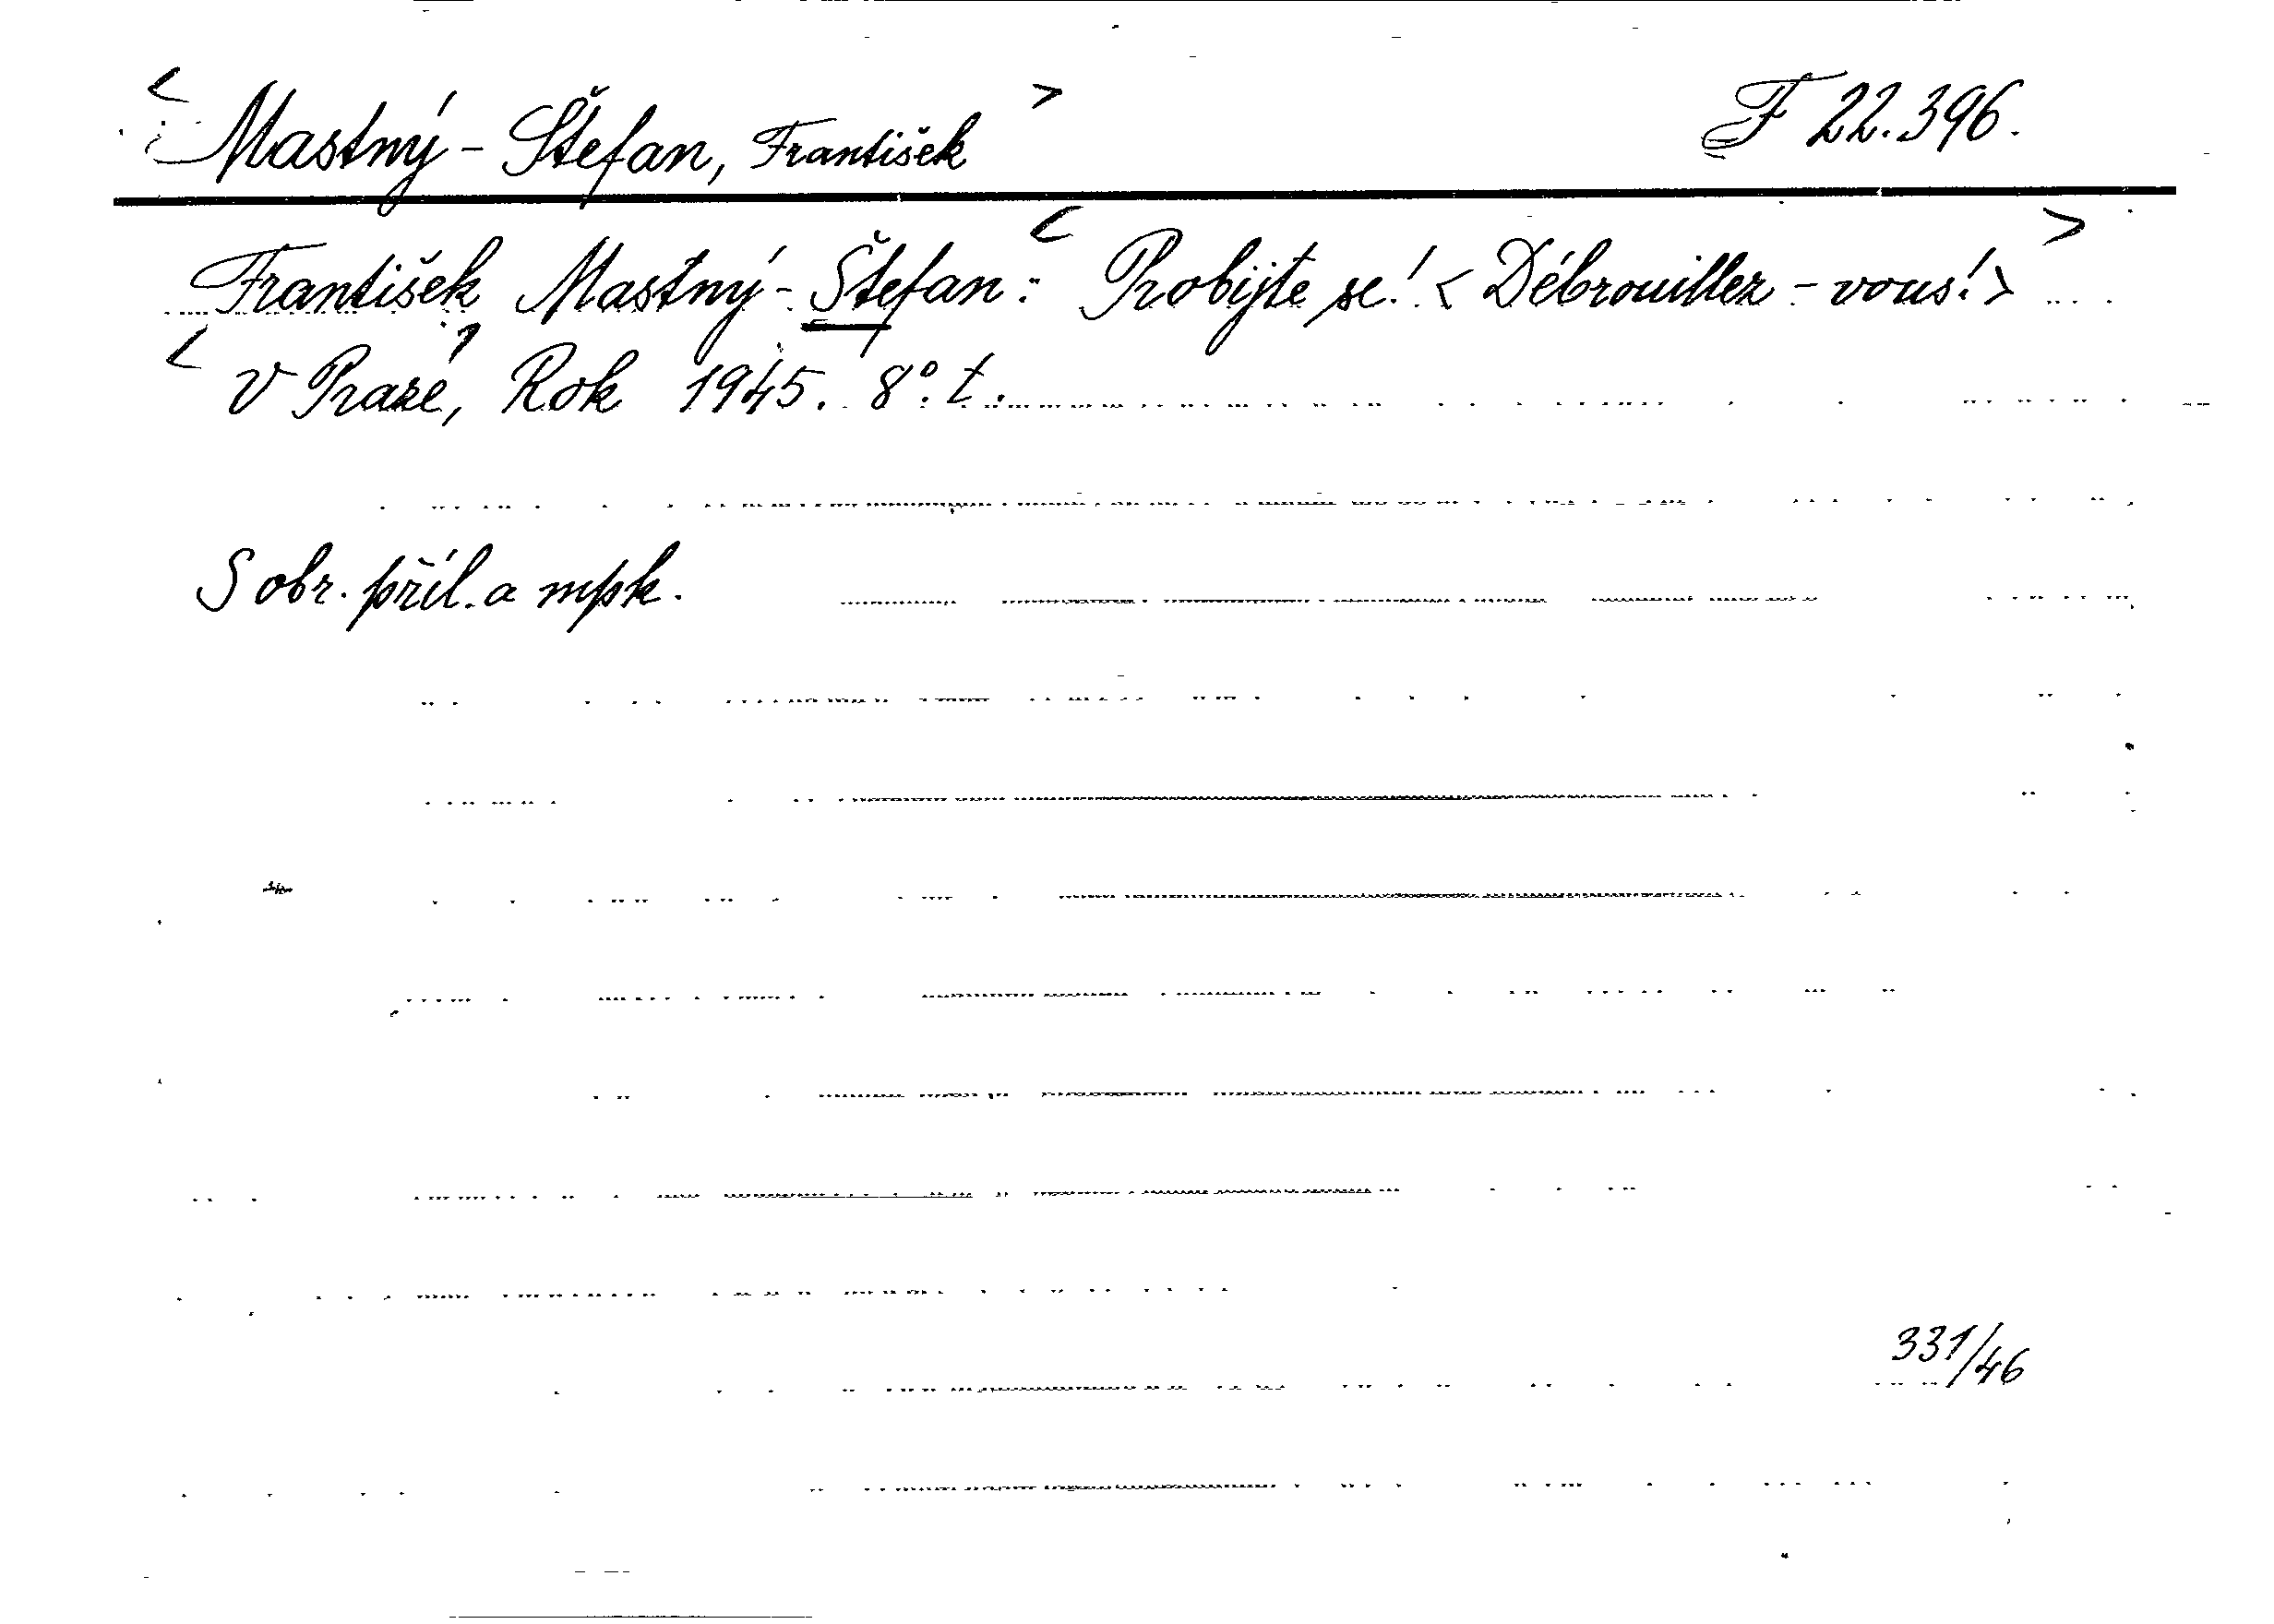 <Mastný-Štefan, František> F 22.396.
František Mastný-Štefan: <Probijte se! <Débrouillez-vous!>>
<V Praze>, Rok 1945. 8°. t.
S obr. příl. a mpk.
331/46